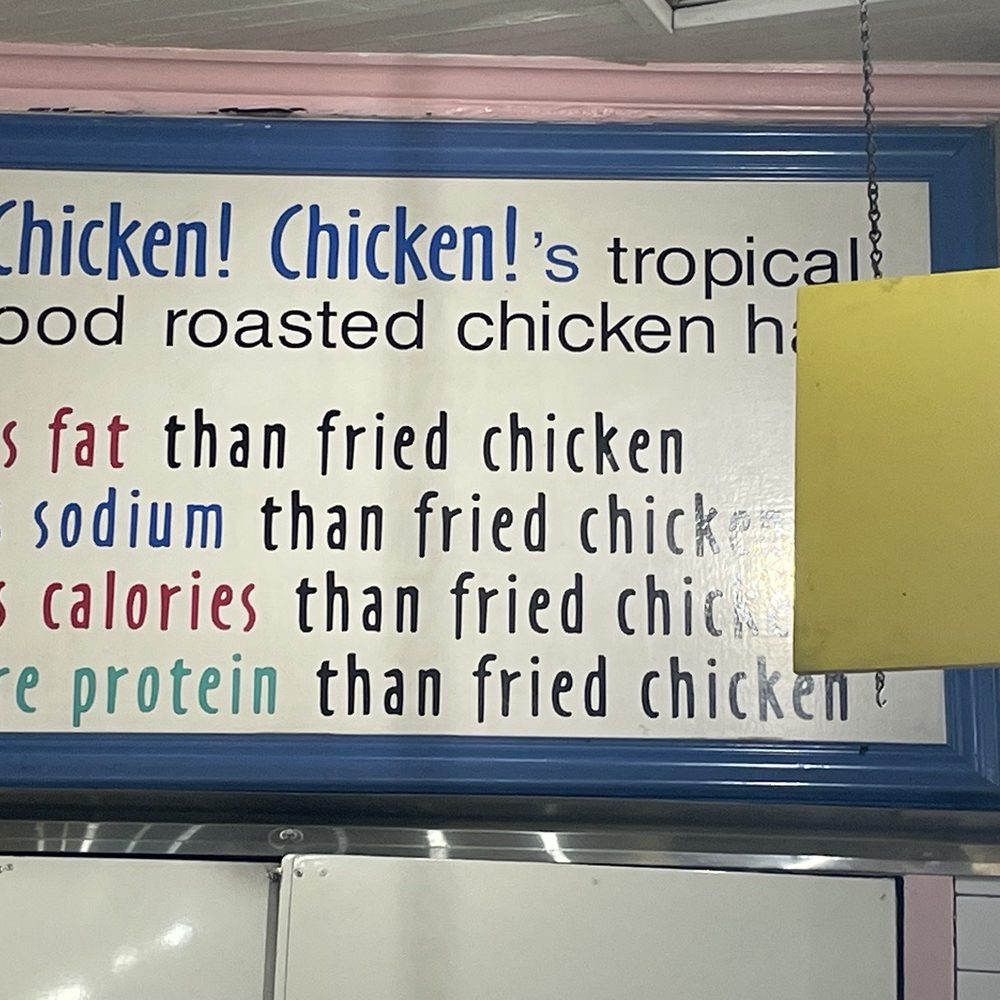 Chicken! Chicken!'s tropical
roasted chicken
fat than fried chicken
sodium than fried chicken
calories than fried
protein than fried chicken